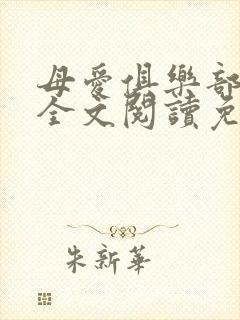 母愛俱樂部
全文閱讀免
朱新華